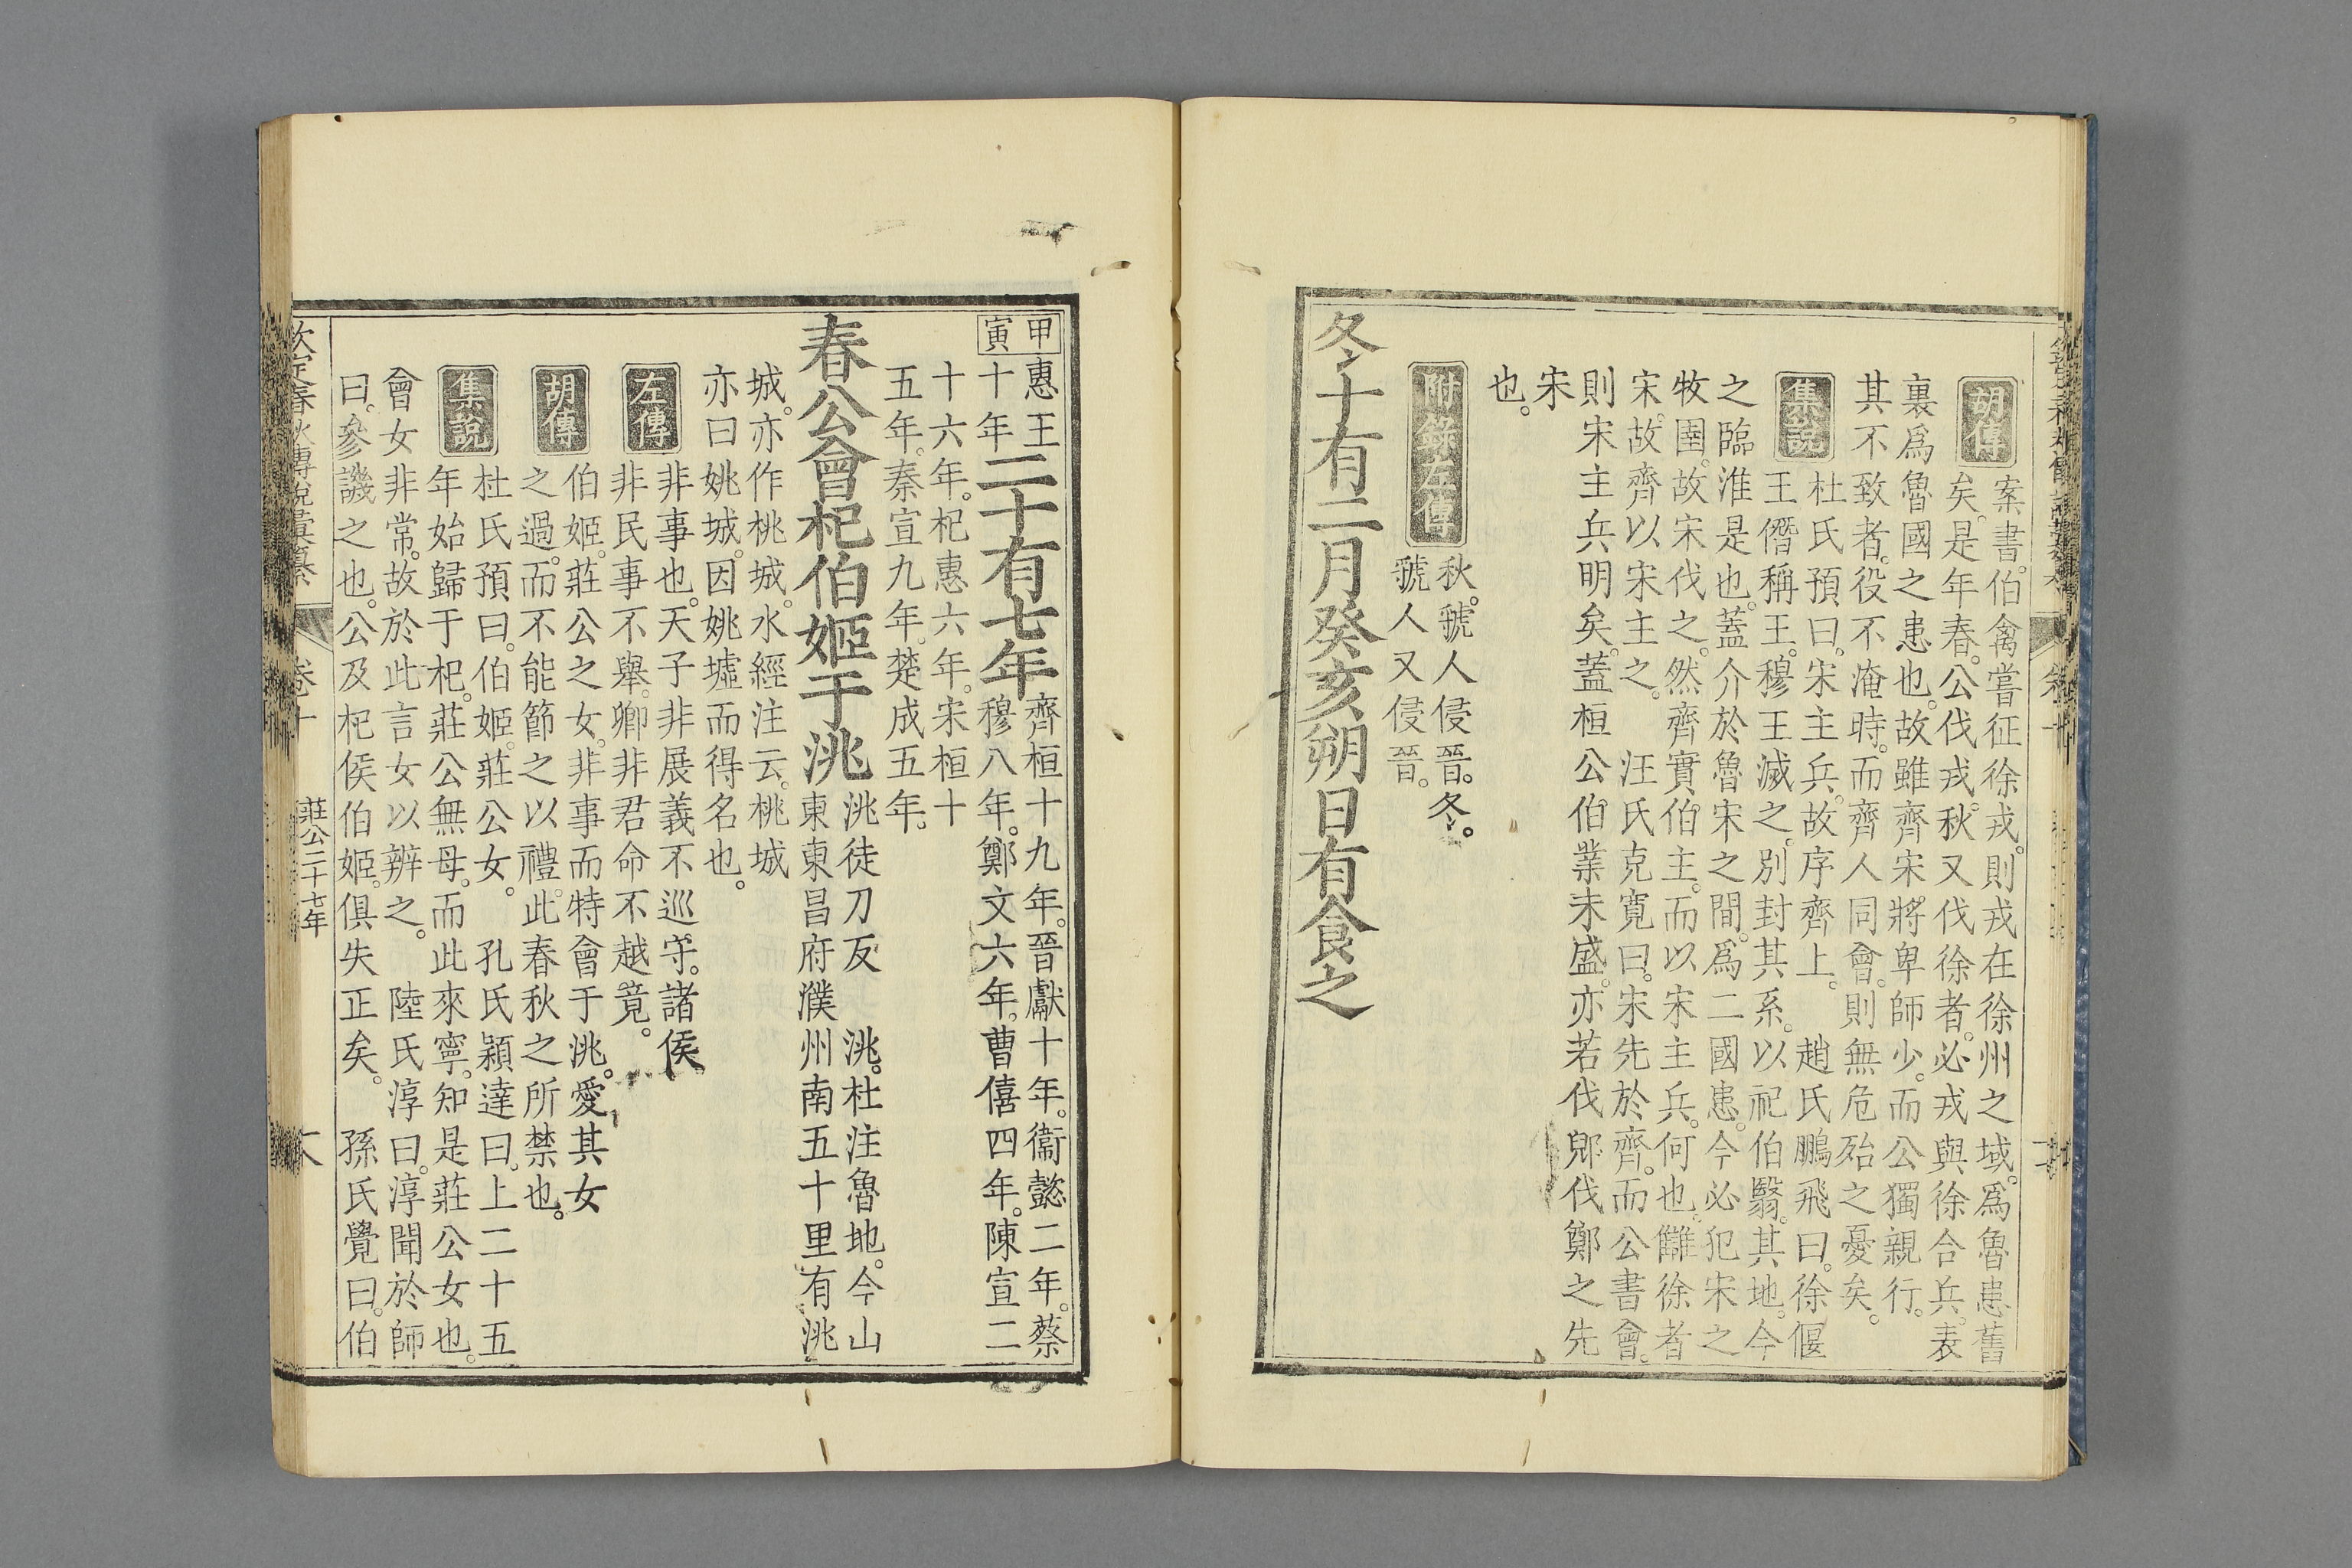 胡傳
案書。伯禽嘗征徐戎。則戎在徐州之域。爲魯患舊
矣。是年春。公伐戎。秋。又伐徐者。必戎與徐合兵。表
裏爲魯國之患也。故雖齊宋。將卑師少。而公獨親行。
其不致者。役不淹時。而齊人同會。則無危殆之憂矣。
集說
杜氏預曰。宋主兵。故序齊上。 趙氏鵬飛曰。徐偃
王僭稱王。穆王滅之。別封其系。以祀伯翳。其地。今
之臨淮是也。蓋介於魯宋之間。爲二國患。今必犯宋之
牧圉。故宋伐之。然齊實伯主。而以宋主兵。何也。讎徐者
宋。故齊以宋主之。 汪氏克寬曰。宋先於齊。而公書會。
則宋主兵明矣。蓋桓公伯業未盛。亦若伐郳伐鄭之先
宋
也。
附錄左傳
秋。虢人侵晉。冬。
虢人又侵晉。
冬十有二月癸亥朔日有食之
甲
寅
惠王
十年
二十有七年
齊桓十九年。晉獻十年。衞懿二年。蔡
穆八年。鄭文六年。曹僖四年。陳宣二
十六年。杞惠六年。宋桓十
五年。秦宣九年。楚成五年。
春公會杞伯姬于洮
洮徒刀反 洮。杜注魯地。今山
東東昌府濮州南五十里有洮
城。亦作桃城。水經注云。桃城
亦曰姚城。因姚墟而得名也。
左傳
非事也。天子非展義不巡守。諸侯
非民事不舉。卿非君命不越竟。
胡傳
伯姬。莊公之女。非事而特會于洮。愛其女
之過。而不能節之以禮。此春秋之所禁也。
集說
杜氏預曰。伯姬。莊公女。 孔氏穎達曰。上二十五
年始歸于杞。莊公無母。而此來寧。知是莊公女也。
會女非常。故於此言女以辨之。 陸氏淳曰。淳聞於師
曰。參譏之也。公及杞侯伯姬。俱失正矣。 孫氏覺曰。伯
欽定春秋傳說彙纂 卷十 莊公二十七年